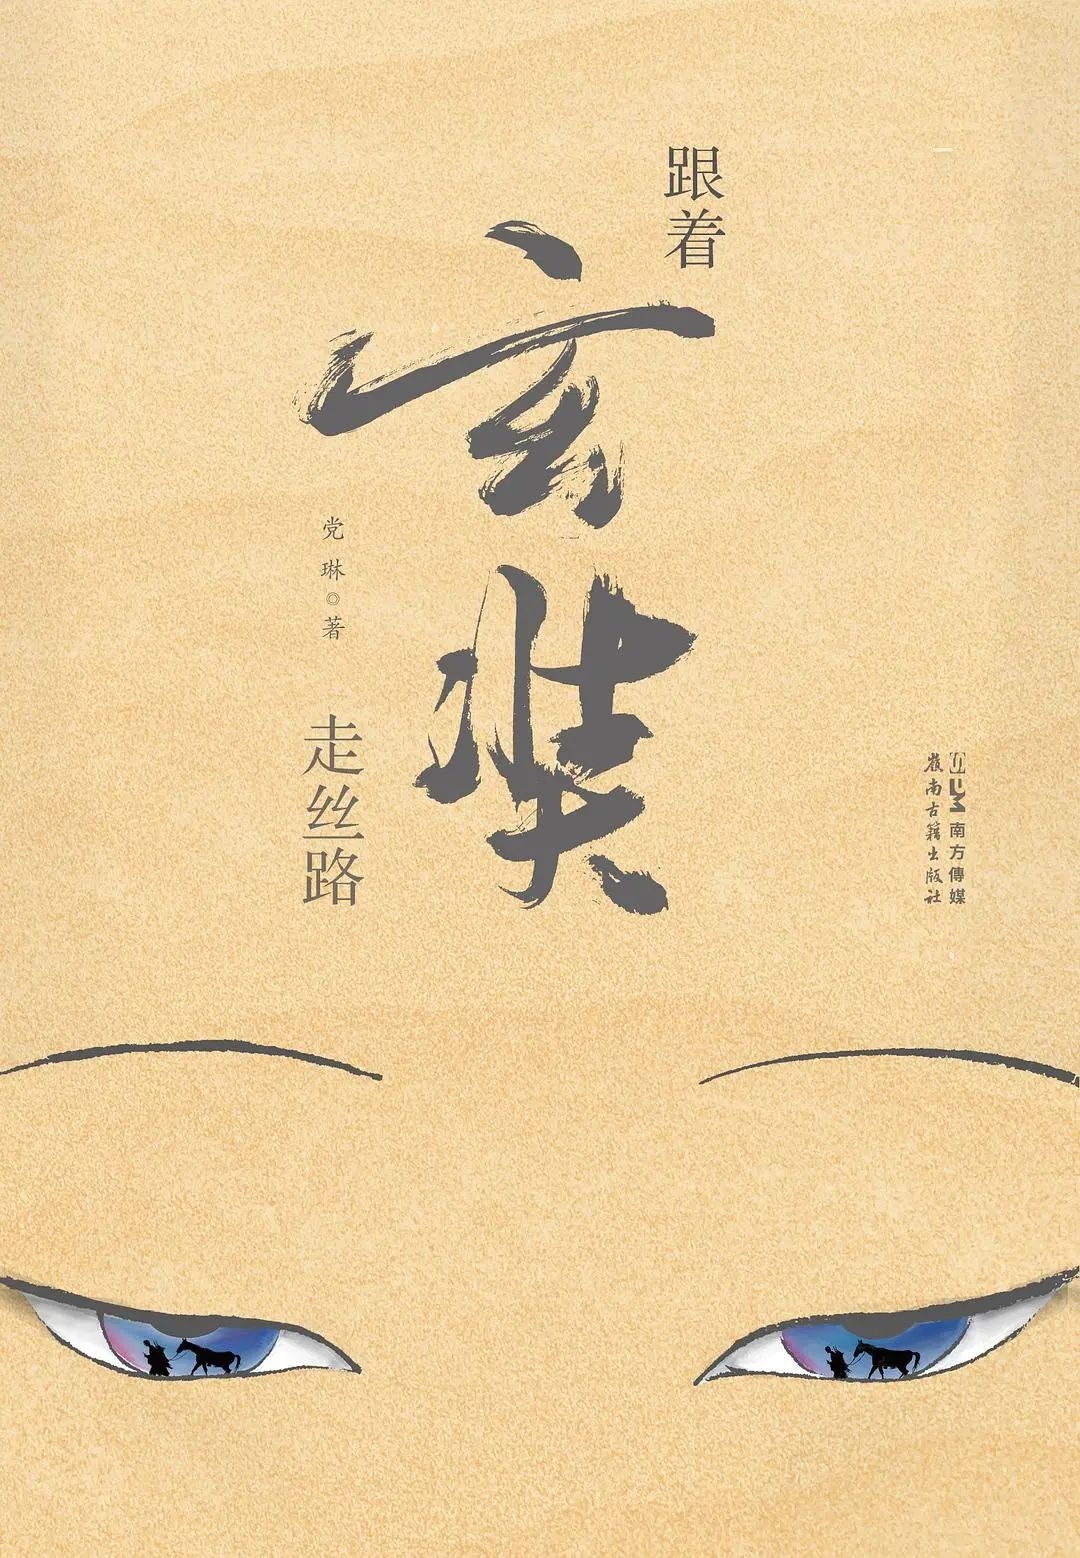 跟着
玄奘
走丝路
党琳◎著
南方傳媒
嶺南古籍出版社